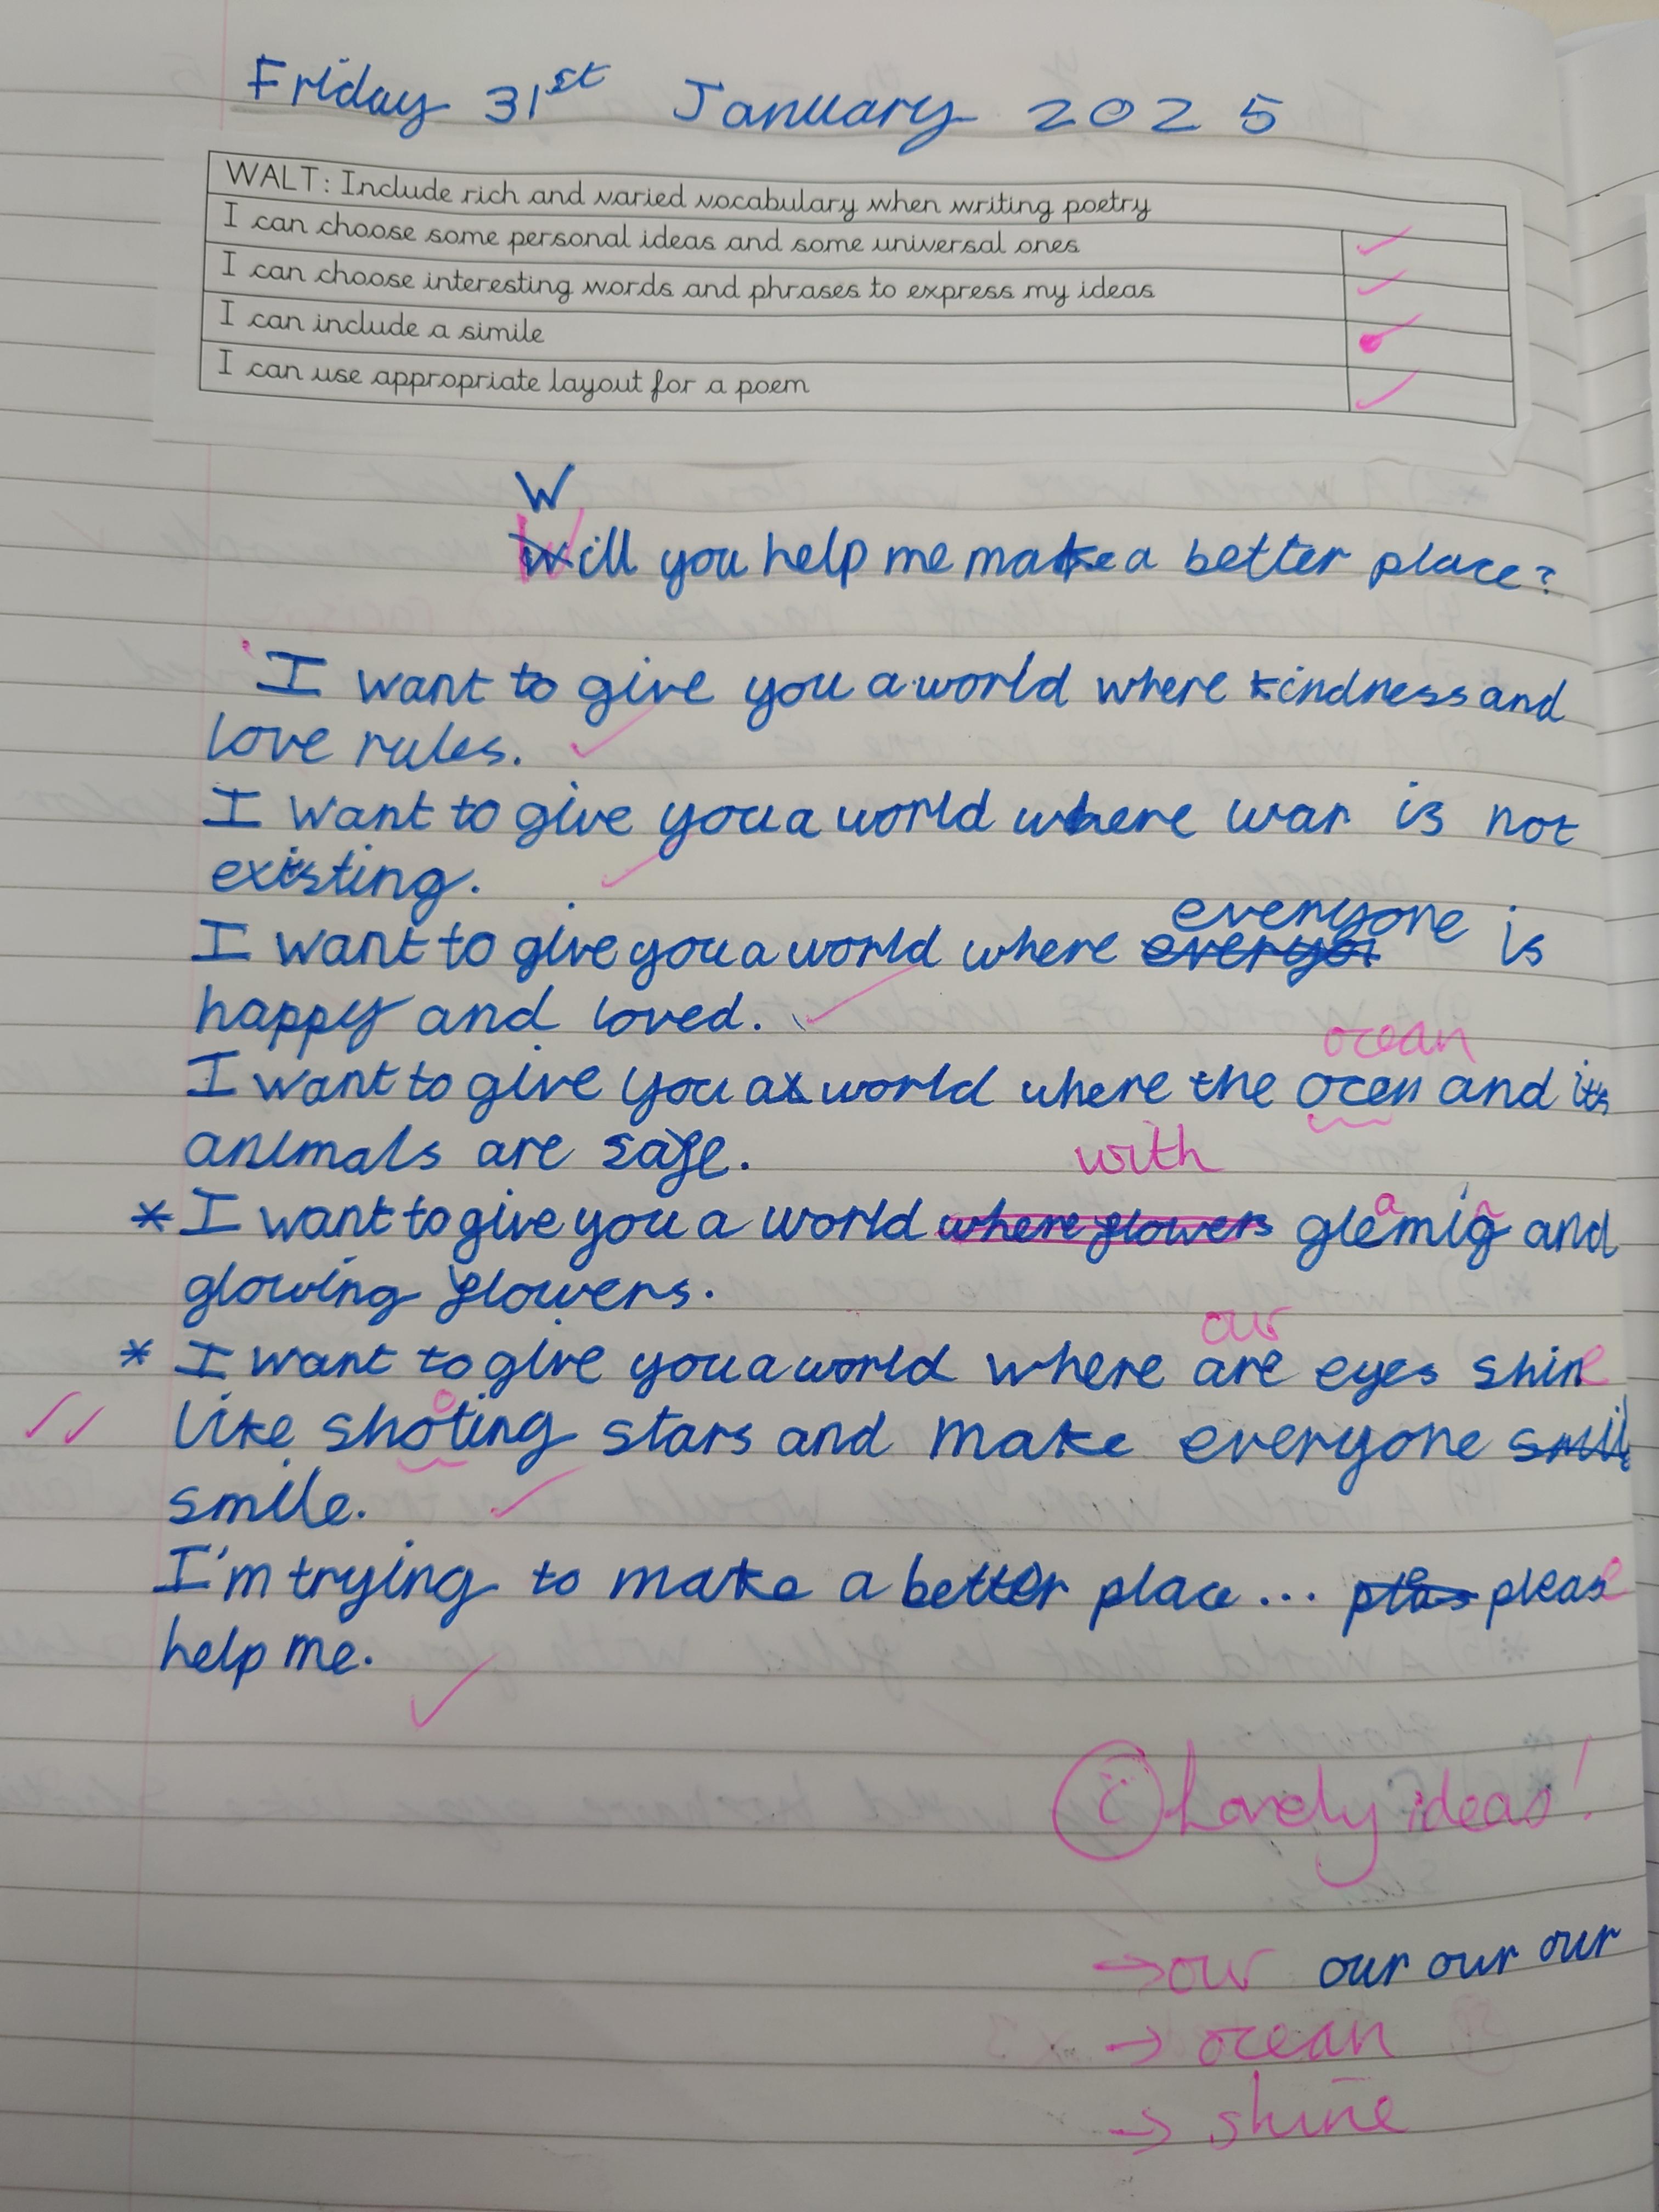 Friday 31st January 2025
WALT: Include rich and varied vocabulary when writing poetry
I can choose some personal ideas and some universal ones
I can choose interesting words and phrases to express my ideas
I can include a simile
I can use appropriate layout for a poem
W
Will you help me make a better place?
I want to give you a world where kindness and
love rules.
I want to give you a world where war is not
existing.
everyone
I want to give you a world where everyo is
happy and loved.
ocean
I want to give you a world where the ocen and its
animals are safe.
with
* I want to give you a world where flowers glemig and
glowing flowers.
our
* I want to give you a world where are eyes shine
like shoting stars and make everyone smil
smile.
I'm trying to make a better place... pleas please
help me.
Lovely ideas!
→ our our our our
→ ocean
→ shine